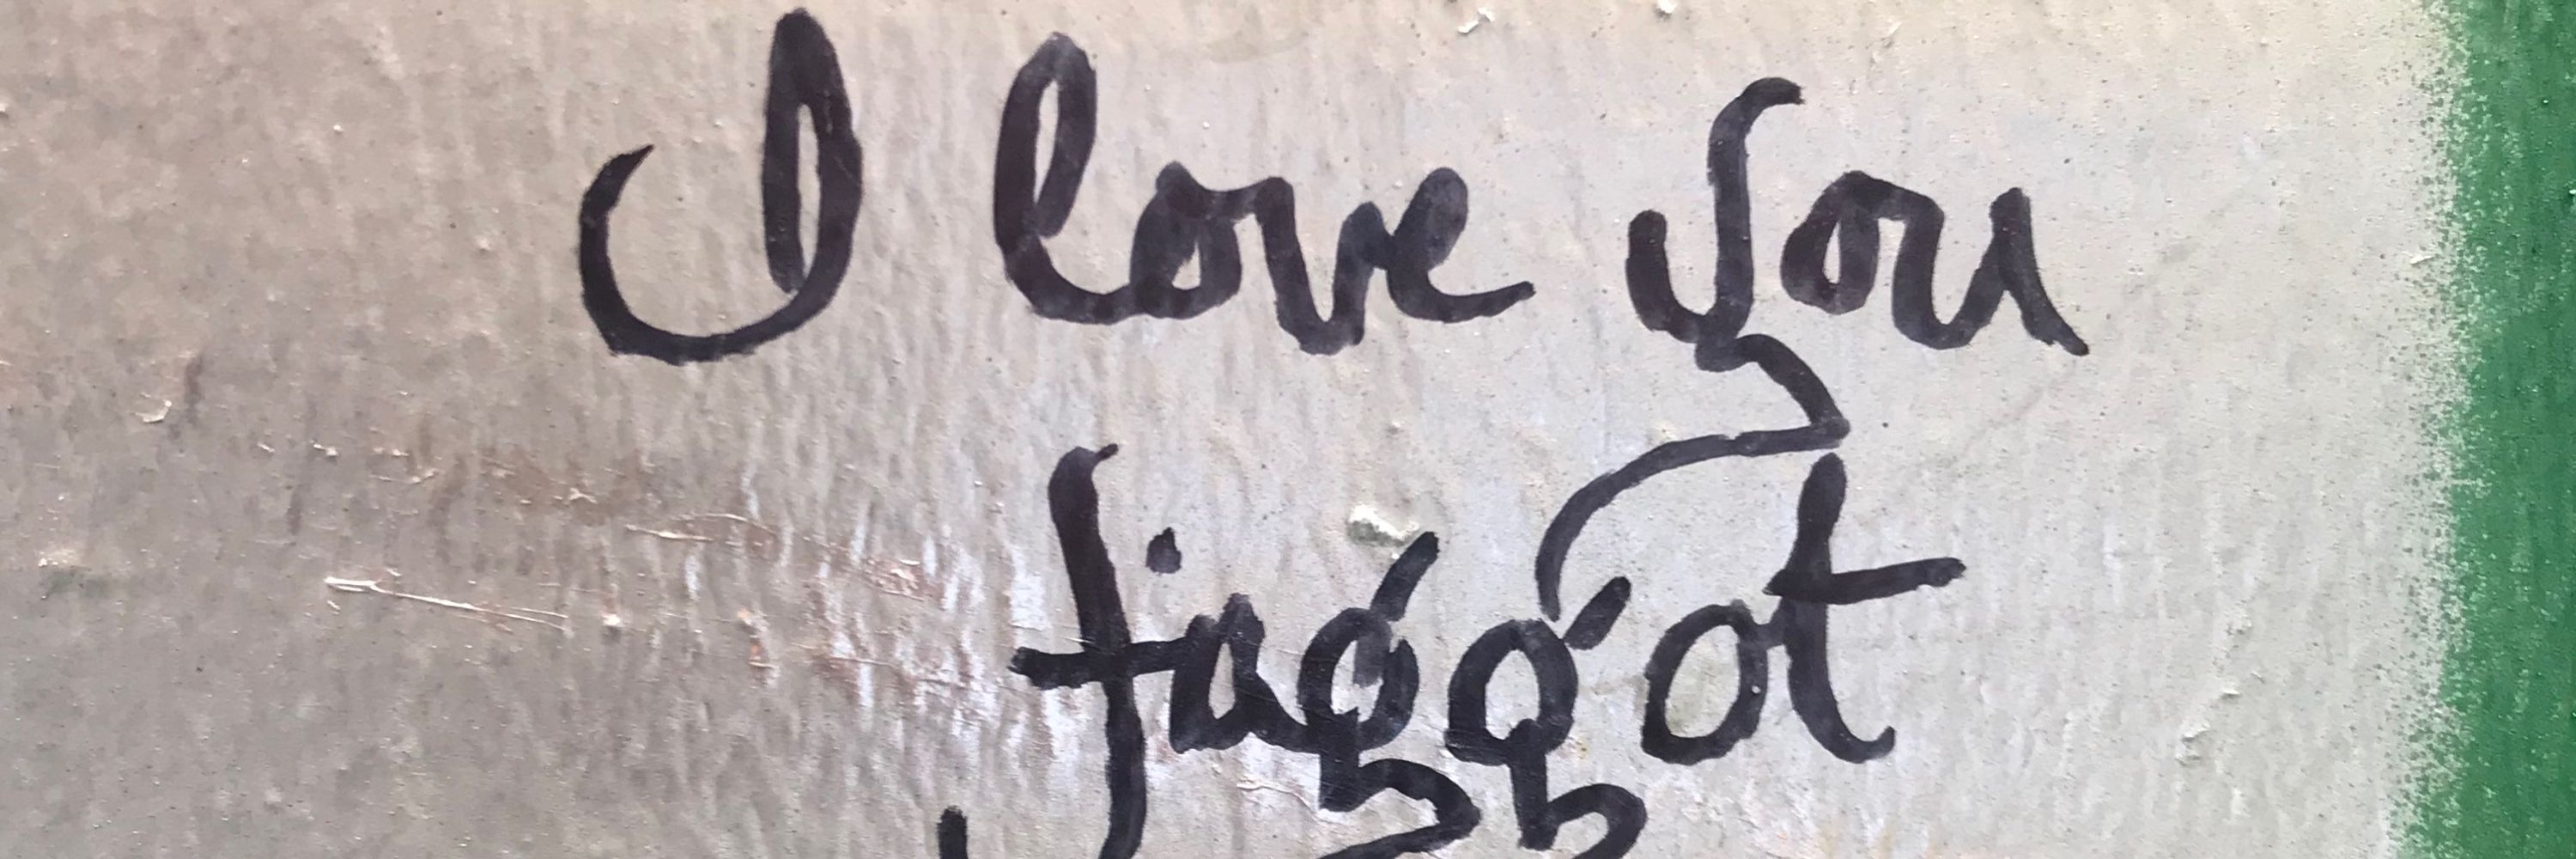 I love you
faggot